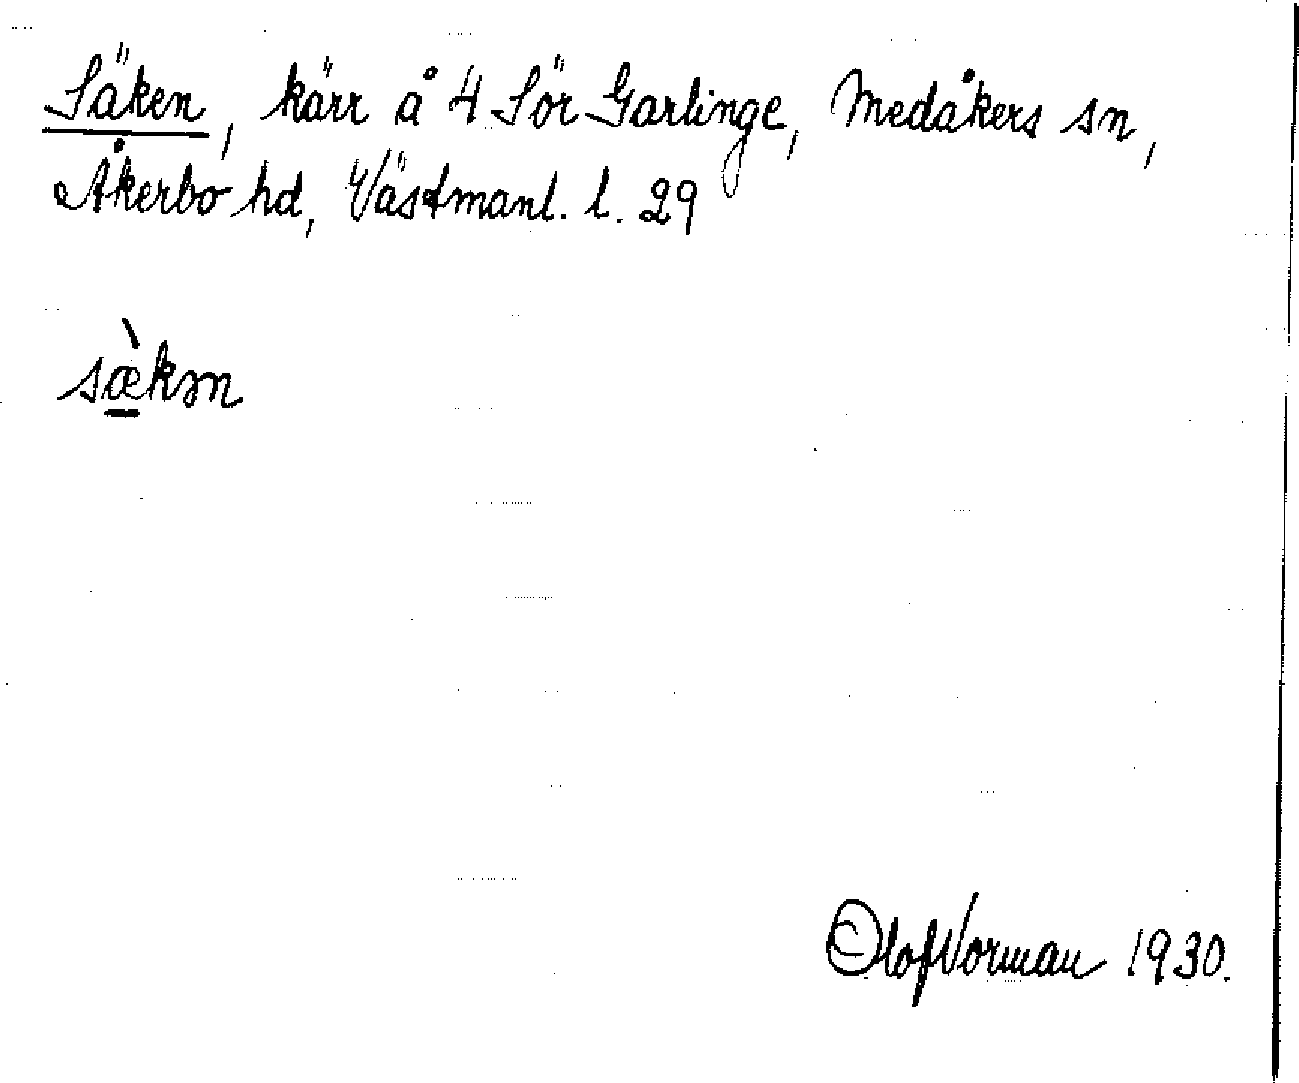 Säken, kärr å 4 Sör Garlinge, Medåkers sn,
Åkerbo hd, Västmanl. l. 29
sæ̠̀kən
Olof Norman 1930.